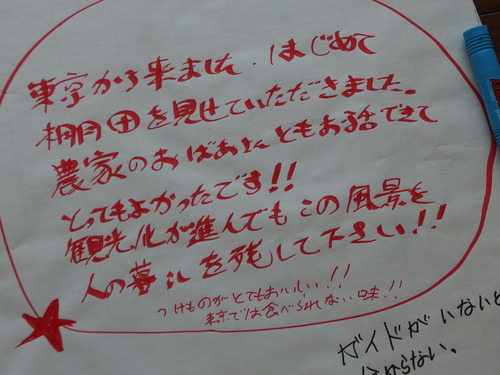 東京から来ました。はじめて
棚田を見せていただきました。
農家のおばあさんともお話できて
とってもよかったです!!
観光化が進んでもこの風景を
人の暮しを残して下さい!!
つけものがとてもおいしい!!
東京では食べられない味!!
ガイドがいないと
分からない。